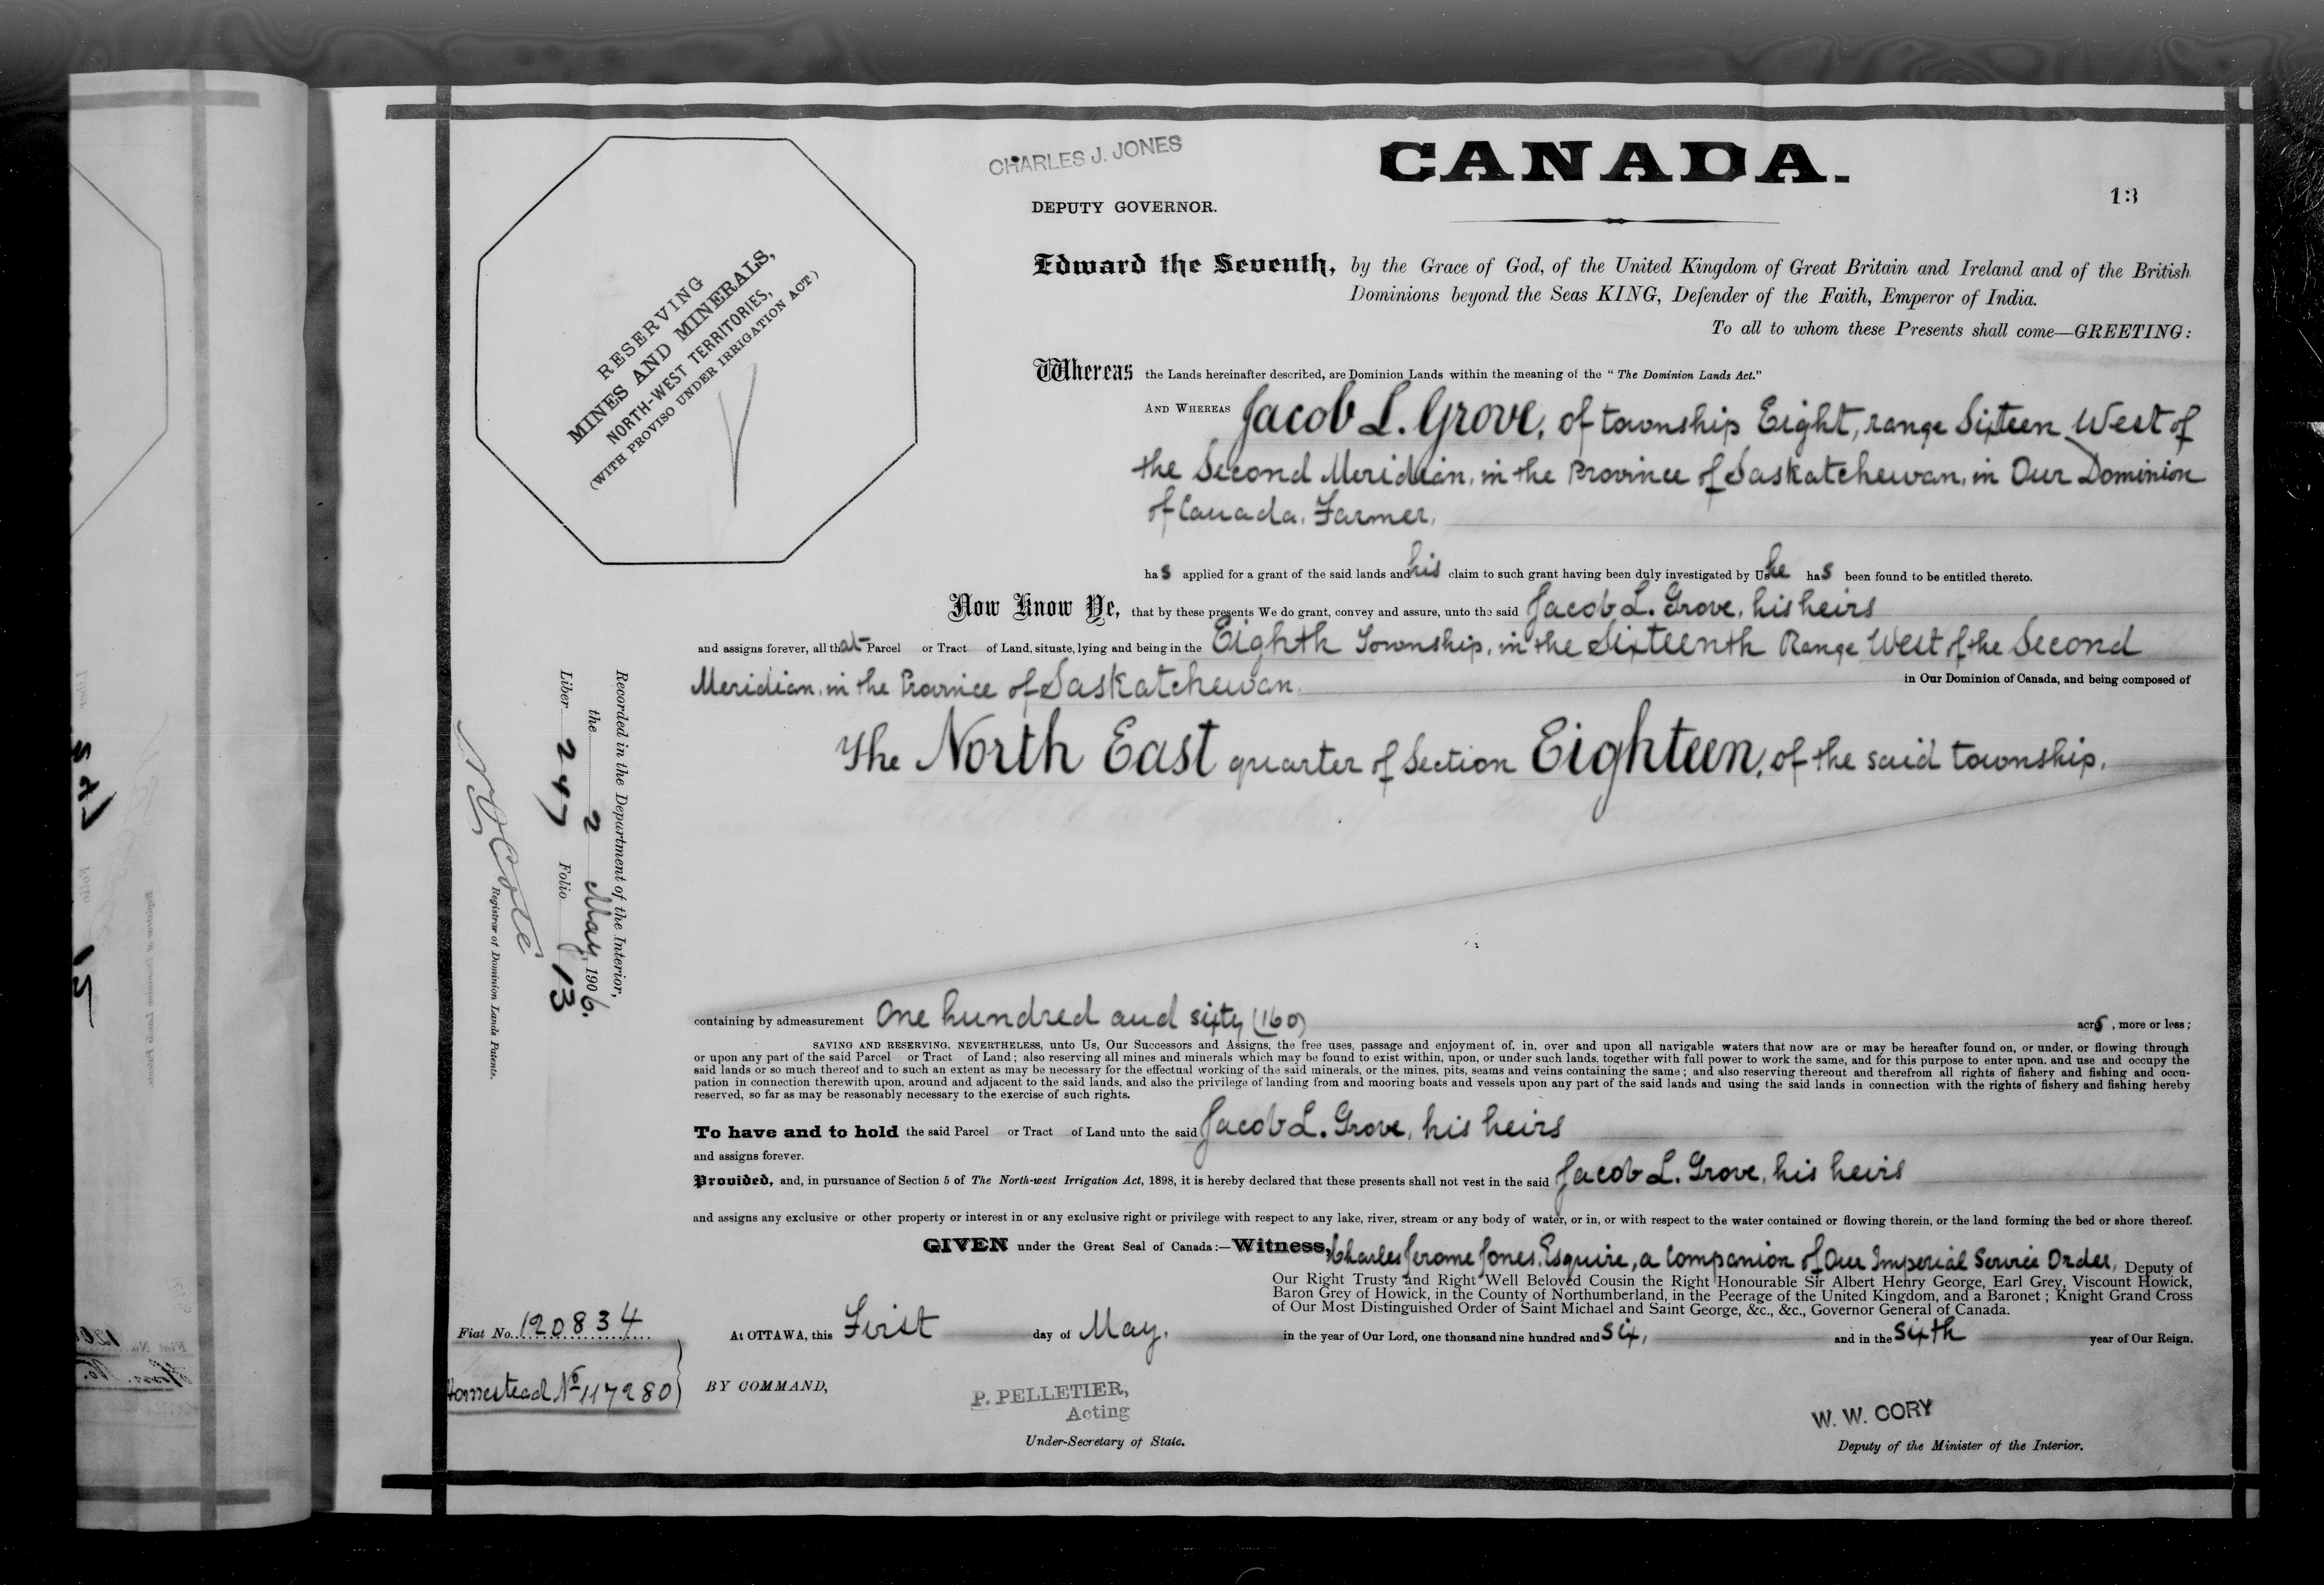 CHARLES J. JONES
CANADA.
DEPUTY GOVERNOR.
13
RESERVING
MINES AND MINERALS,
NORTH-WEST TERRITORIES,
(WITH PROVISO UNDER IRRIGATION ACT)
Edward the Seventh, by the Grace of God, of the United Kingdom of Great Britain and Ireland and of the British
Dominions beyond the Seas KING, Defender of the Faith, Emperor of India.
To all to whom these Presents shall come—GREETING:
Whereas the Lands hereinafter described, are Dominion Lands within the meaning of the "The Dominion Lands Act."
AND WHEREAS Jacob L. Grove, of township Eight, range Sixteen West of
the Second Meridian, in the Province of Saskatchewan, in Our Dominion
of Canada, Farmer,
has applied for a grant of the said lands and his claim to such grant having been duly investigated by Us he has been found to be entitled thereto.
Now Know Ye, that by these presents We do grant, convey and assure, unto the said Jacob L. Grove, his heirs
and assigns forever, all that Parcel or Tract of Land, situate, lying and being in the Eighth Township, in the Sixteenth Range West of the Second
Meridian, in the Province of Saskatchewan, in Our Dominion of Canada, and being composed of
The North East quarter of Section Eighteen, of the said township.
containing by admeasurement One hundred and sixty (160) acrs, more or less;
SAVING AND RESERVING, NEVERTHELESS, unto Us, Our Successors and Assigns, the free uses, passage and enjoyment of, in, over and upon all navigable waters that now are or may be hereafter found on, or under, or flowing through
or upon any part of the said Parcel or Tract of Land; also reserving all mines and minerals which may be found to exist within, upon, or under such lands, together with full power to work the same, and for this purpose to enter upon, and use and occupy the
said lands or so much thereof and to such an extent as may be necessary for the effectual working of the said minerals, or the mines, pits, seams and veins containing the same; and also reserving thereout and therefrom all rights of fishery and fishing and occu-
pation in connection therewith upon, around and adjacent to the said lands, and also the privilege of landing from and mooring boats and vessels upon any part of the said lands and using the said lands in connection with the rights of fishery and fishing hereby
reserved, so far as may be reasonably necessary to the exercise of such rights.
To have and to hold the said Parcel or Tract of Land unto the said Jacob L. Grove, his heirs
and assigns forever.
Provided, and, in pursuance of Section 5 of The North-west Irrigation Act, 1898, it is hereby declared that these presents shall not vest in the said Jacob L. Grove, his heirs
and assigns any exclusive or other property or interest in or any exclusive right or privilege with respect to any lake, river, stream or any body of water, or in, or with respect to the water contained or flowing therein, or the land forming the bed or shore thereof.
GIVEN under the Great Seal of Canada:—Witness, Charles Jerome Jones, Esquire, a Companion of Our Imperial Service Order, Deputy of
Our Right Trusty and Right Well Beloved Cousin the Right Honourable Sir Albert Henry George, Earl Grey, Viscount Howick,
Baron Grey of Howick, in the County of Northumberland, in the Peerage of the United Kingdom, and a Baronet; Knight Grand Cross
of Our Most Distinguished Order of Saint Michael and Saint George, &c., &c., Governor General of Canada.
At OTTAWA, this First day of May, in the year of Our Lord, one thousand nine hundred and six, and in the sixth year of Our Reign.
Fiat No. 120834
Homestead No 117280
BY COMMAND,
P. PELLETIER,
Acting
Under-Secretary of State.
W. W. CORY
Deputy of the Minister of the Interior.
Recorded in the Department of the Interior,
the 2 May, 1906.
Liber 247 Folio 13
N O Cote
Registrar of Dominion Lands Patents.